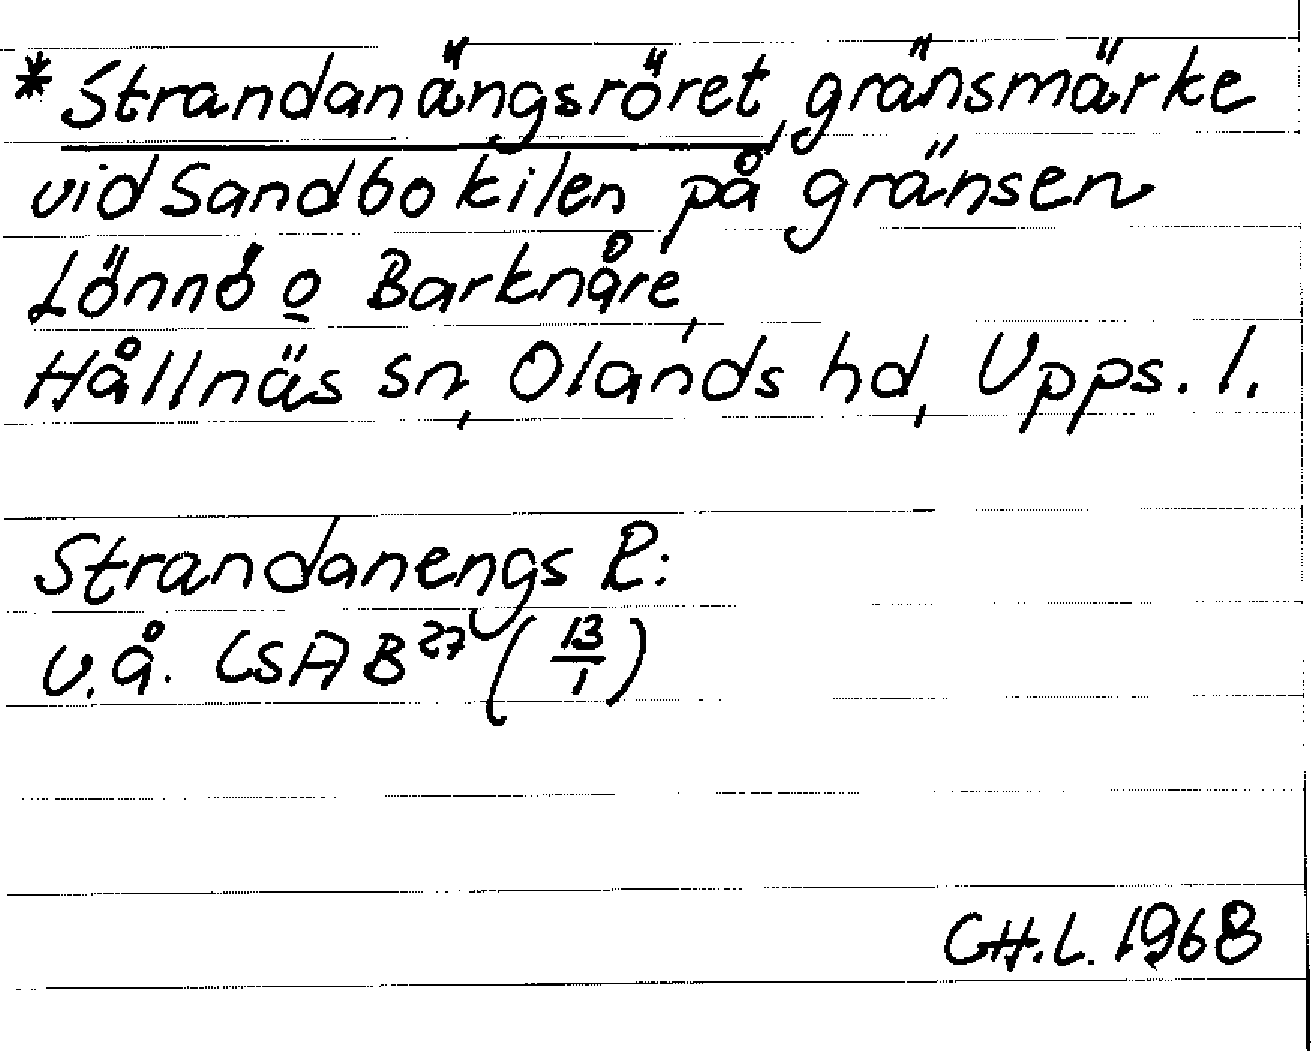 *Strandanängsröret, gränsmärke
vid Sandbokilen på gränsen
Lönnö o Barknåre,
Hållnäs sn, Olands hd, Upps. l.
Strandanengs R:
u.å. LSA B27 (13/1)
CH.L. 1968